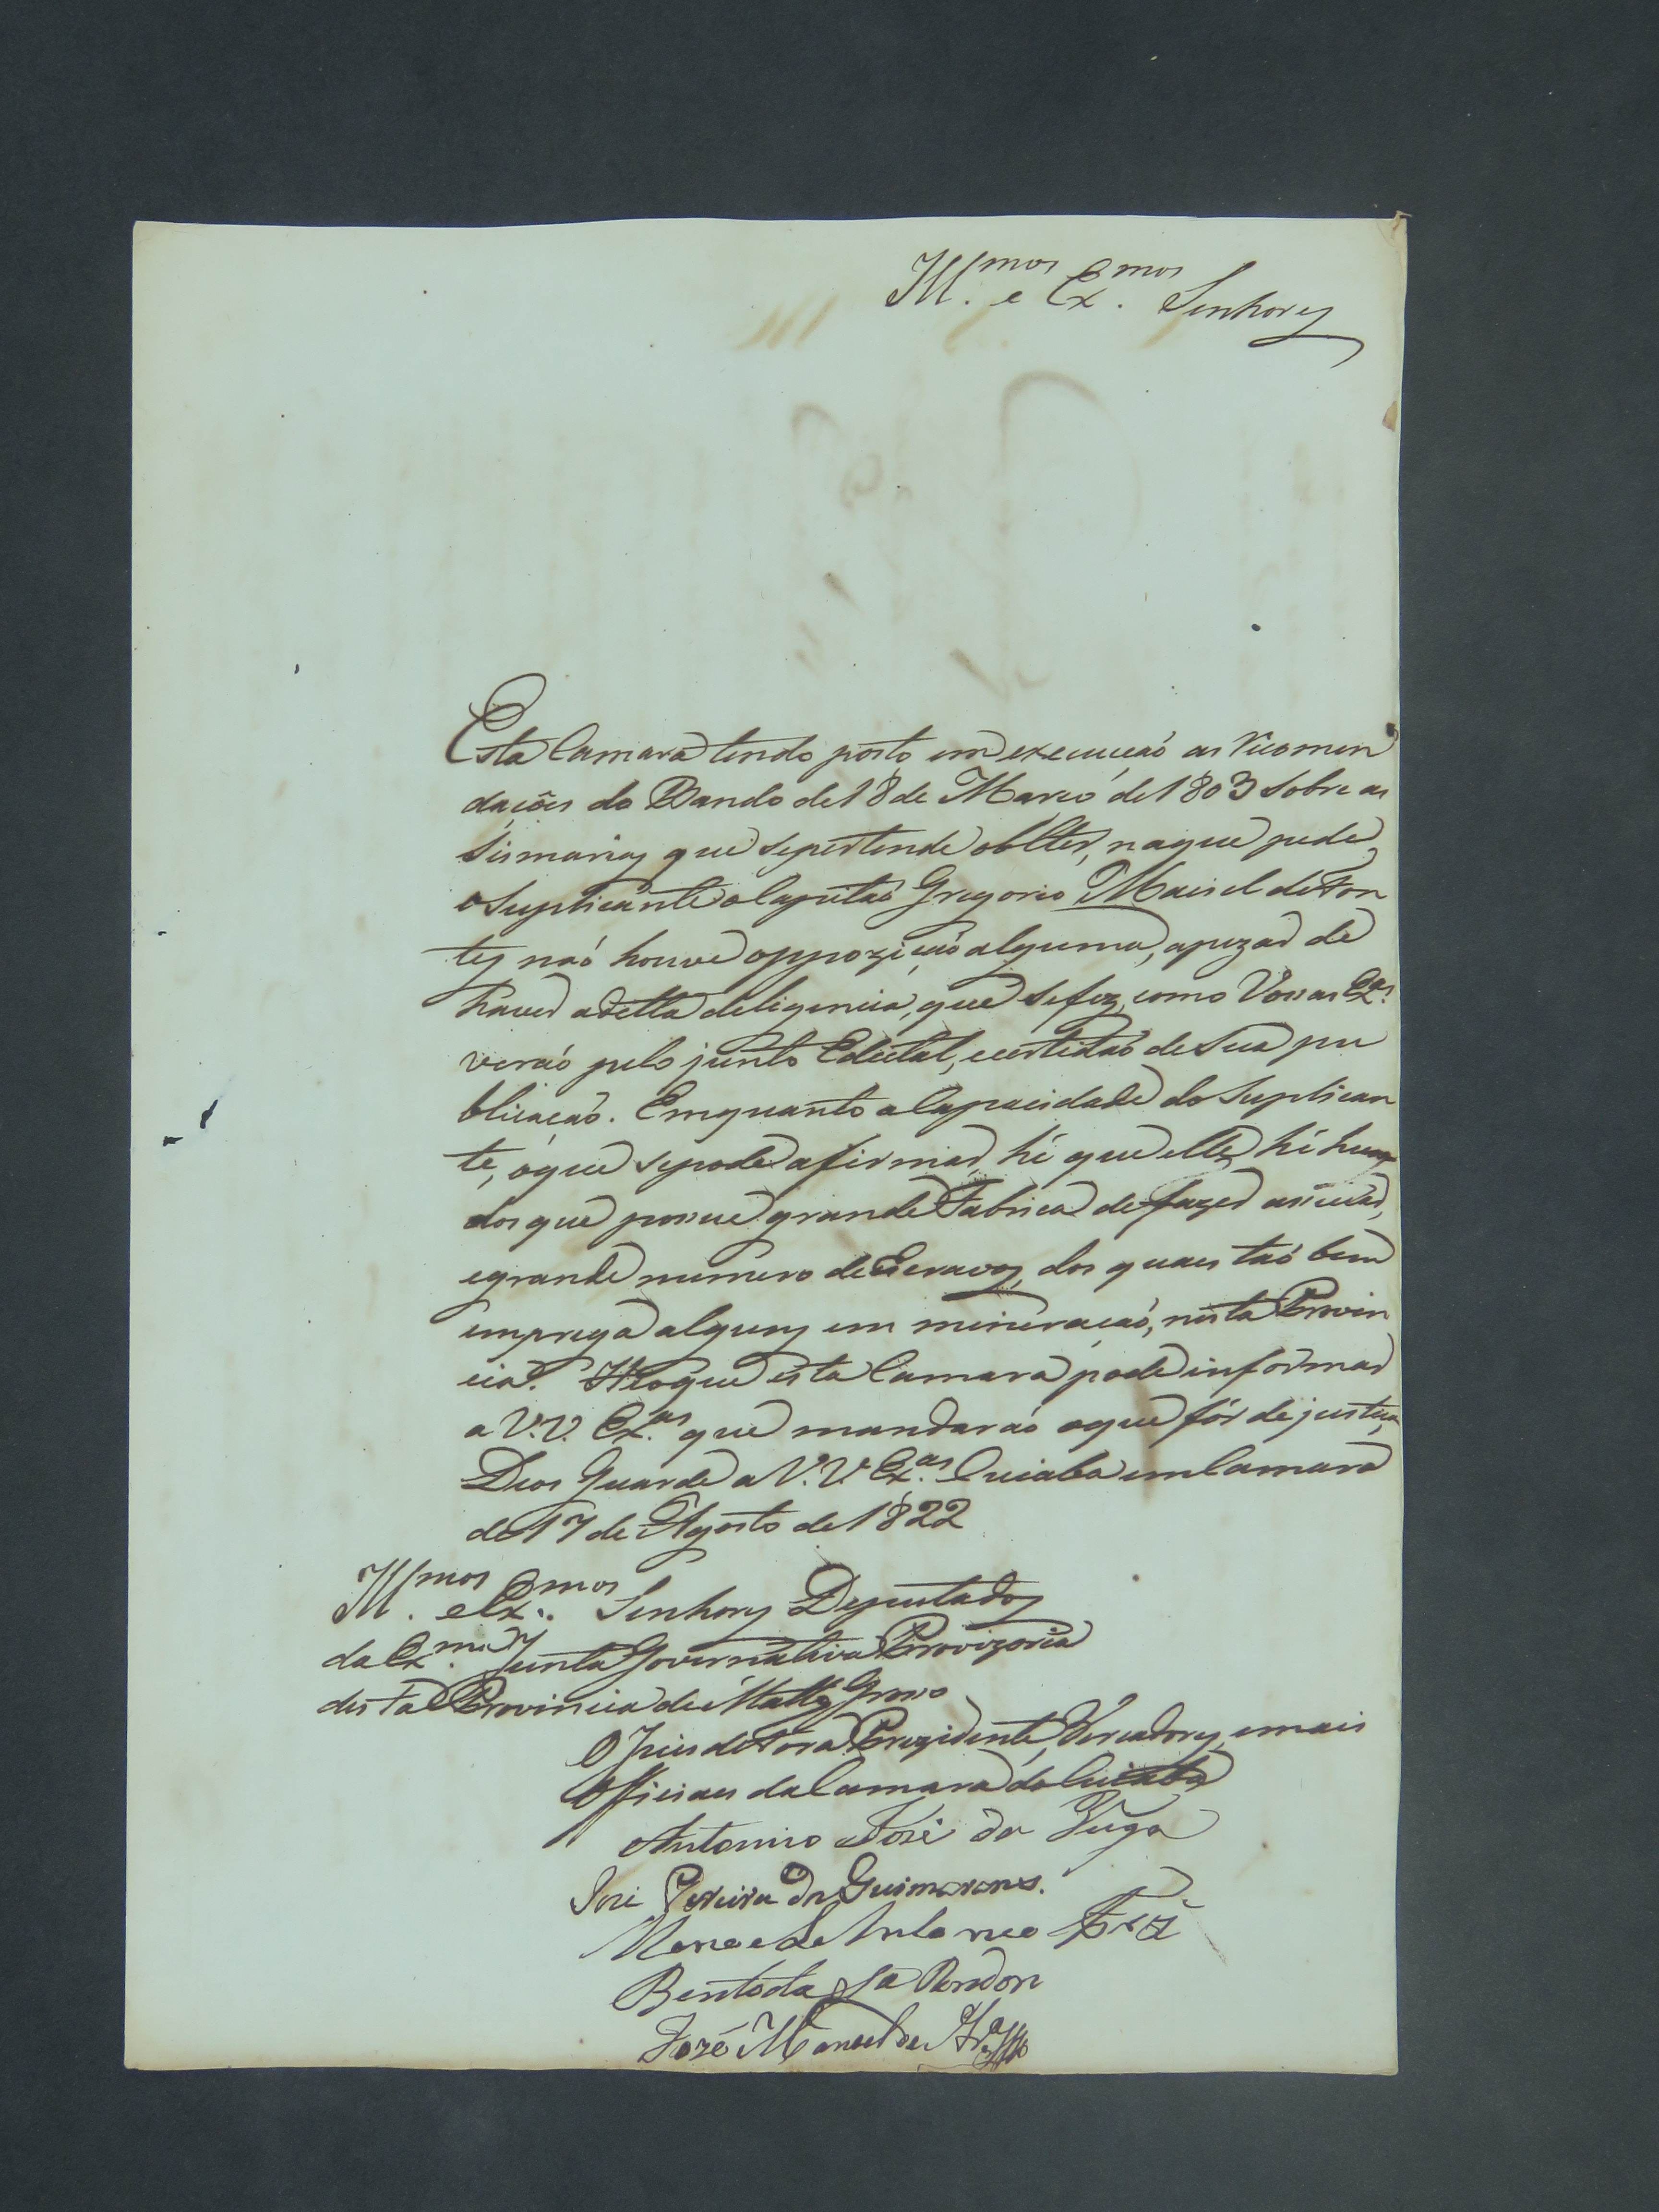 Ill.mos e Ex.mos Senhores
Esta Camara tendo posto em execuçaõ as Ricomen
daçoẽs do Bando de 18 de Março de 1803 sobre as
Sismarias que sepertende obter, naque pede
o Suplicante o Capitaõ Gregorio Maciel de Fon
tes naõ houve oppoziçaõ alguma, apezar de
haver adetta deligencia, que sefez, como Vossas Ex.as
veraõ pelo junto Edital, e certidaõ de sua pu
blicaçaõ. Emquanto a Capacidade do Suplican
te, oque sepode afirmar, hé que elle hé hum
dos que possue grande Fabrica de fazer assucar,
egrande numero de Escravos, dos quaes taõ bem
emprega alguns em mineraçaõ, nesta Provin
cia. Hé oque esta Camara pode informar
a V.V. Ex.as que mandaraõ oque fôr de justiça,
Deos Guarde a V.V. Ex.as Cuiaba em Camara
de 17 de Agosto de 1822
Ill.mos e Ex.mos Senhores Deputados
da Ex.ma Junta Governativa Provizoria
desta Provincia de Matto Grosso
O Juis de Fora Prezidente, Vereadores, emais
Officiaes da Camara do Cuiaba
Antonio José da Veiga
José Pereira dos Guimaraens.
Manoel Antonio
Bento da S.a Rondon
Jozé Manoel de